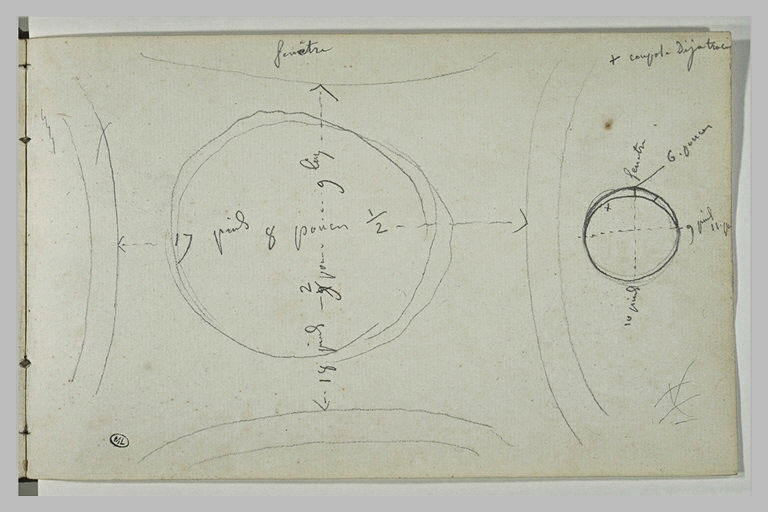 fenêtre
+ coupole
fenêtre
6 pouces
17 pieds 8 pouces 1/2
18 pieds 2 pou. 9 lig
9 pieds 11 p
10 pieds